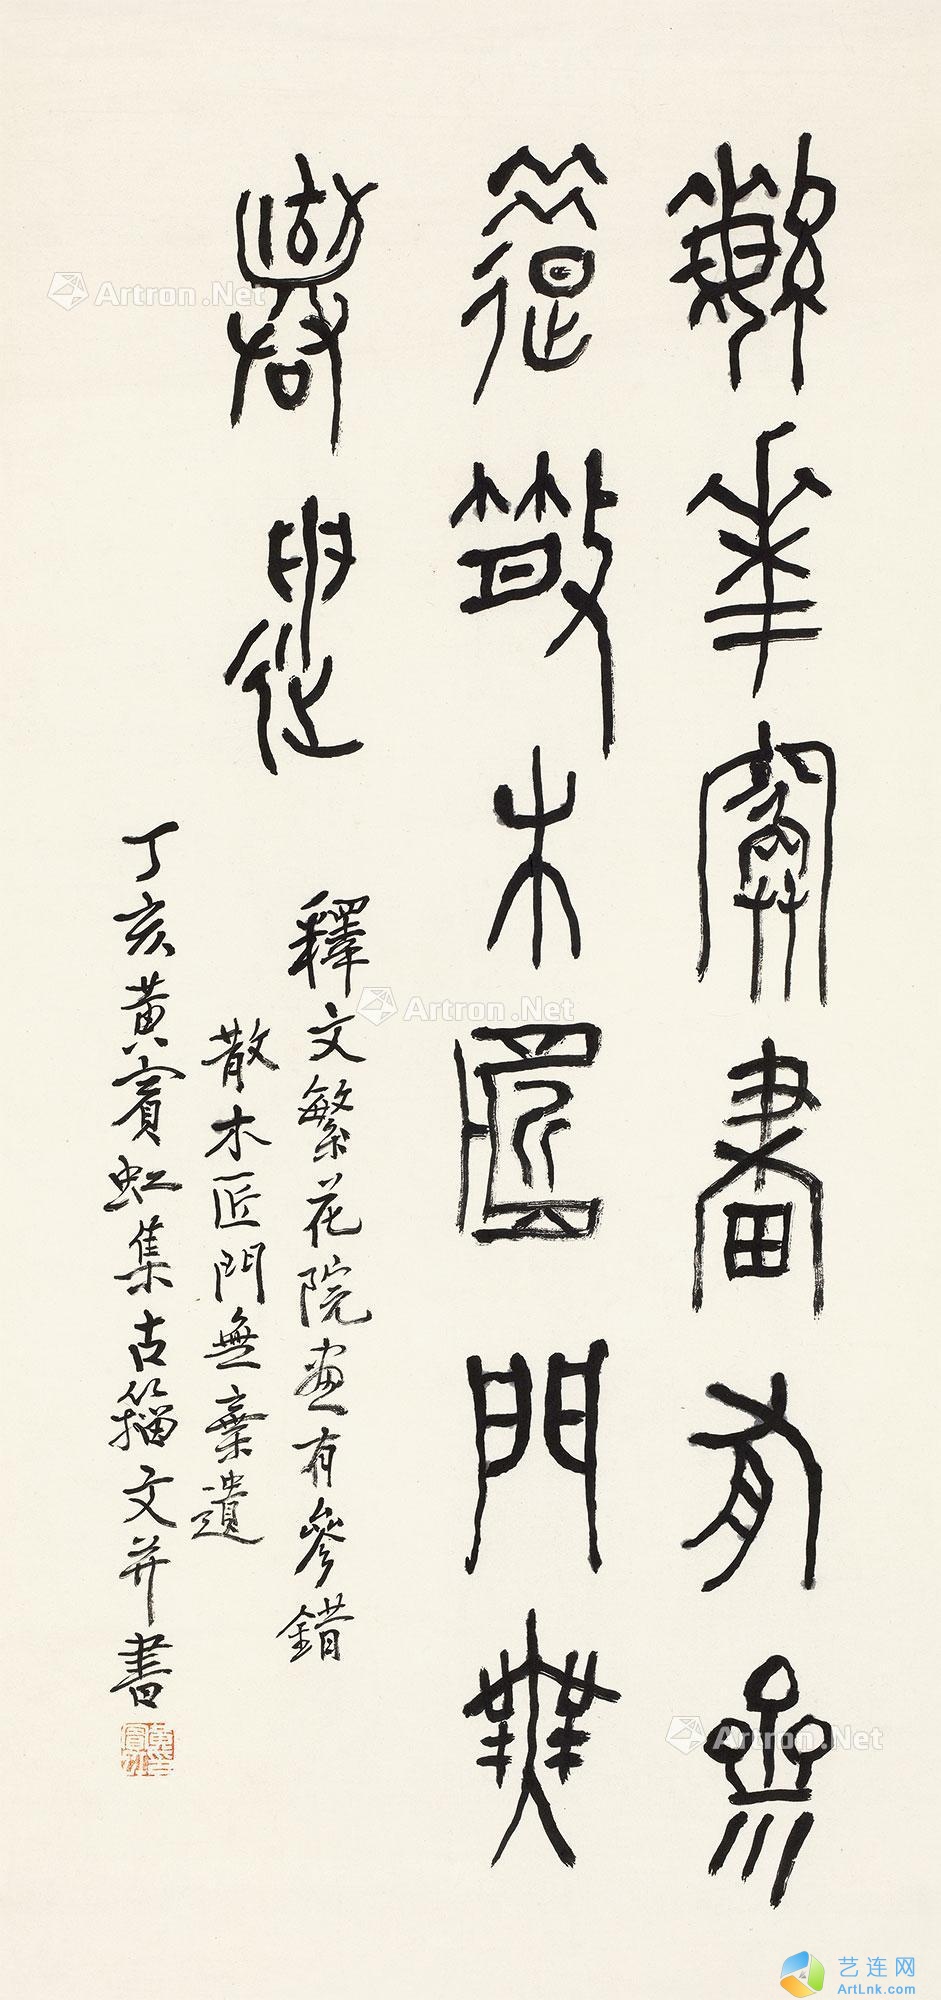 繁華院畫有參
錯散木匠門無
棄遺
釋文繁花院畫有參錯
散木匠門無棄遺
丁亥黃賓虹集古籀文并書
Artron.Net
Artron.Net
Artron.Net
艺连网
ArtLnk.com